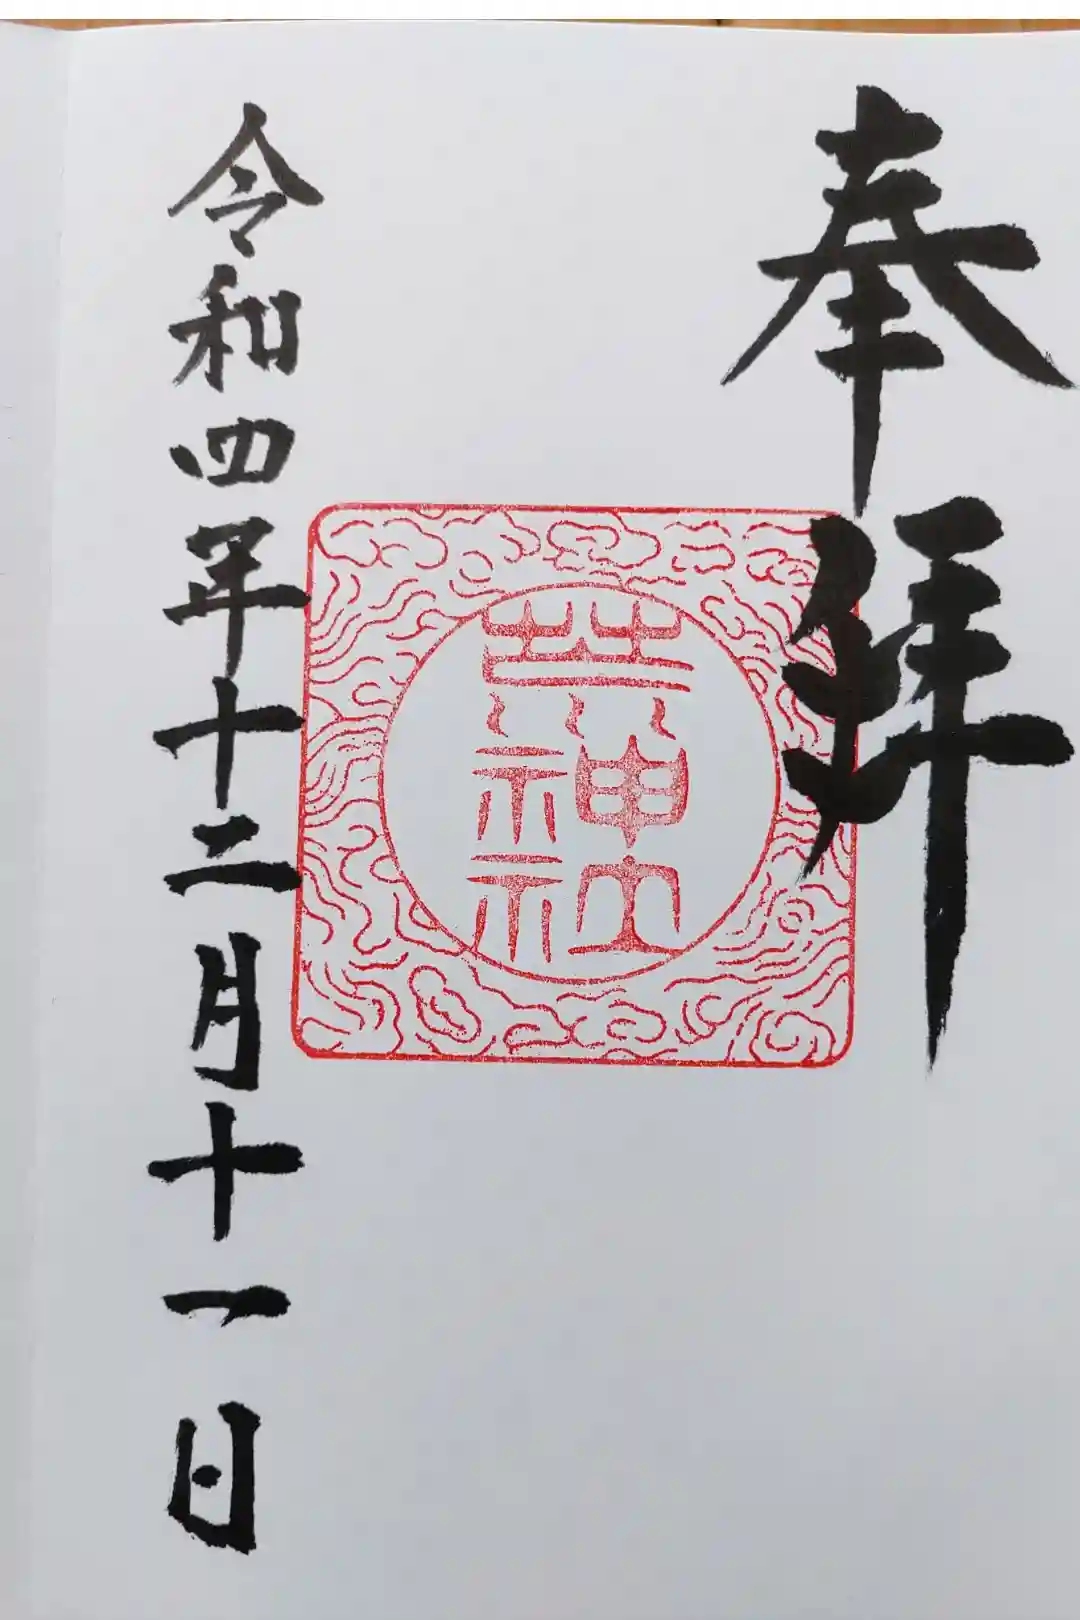 奉拝
荒神社
令和四年十二月十一日